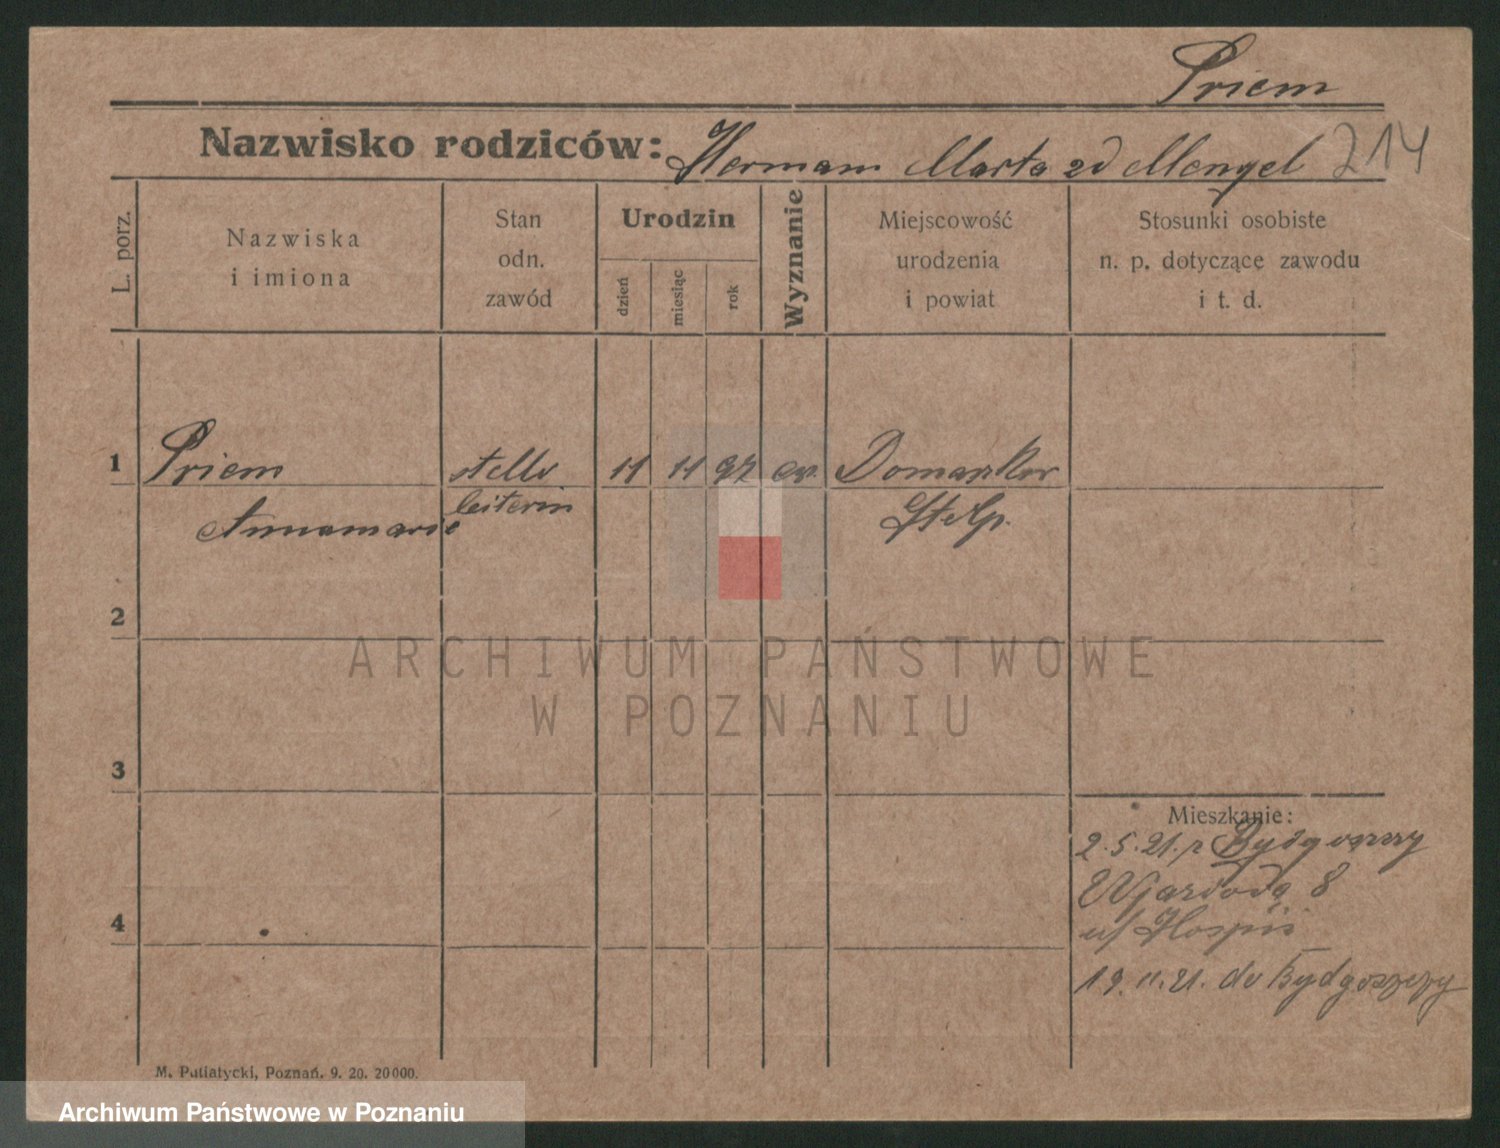 Priem
Nazwisko rodziców: Hermann Marta zd Mengel 214
L. porz.
Nazwiska i imiona
Stan odn. zawód
Urodzin
dzień
miesiąc
rok
Wyznanie
Miejscowość urodzenia i powiat
Stosunki osobiste n. p. dotyczące zawodu i t. d.
1 Priem stellv 11 11 97 ev.
Annamarie leiterin
2
3
Mieszkanie:
2.5.21. z Bydgoszczy
Wjazdowa 8
u/ Hospiz
4
19.11.21. do Bydgoszczy
M. Putiatycki, Poznań. 9. 20. 20000.
ARCHIWUM PAŃSTWOWE
W POZNANIU
Archiwum Państwowe w Poznaniu